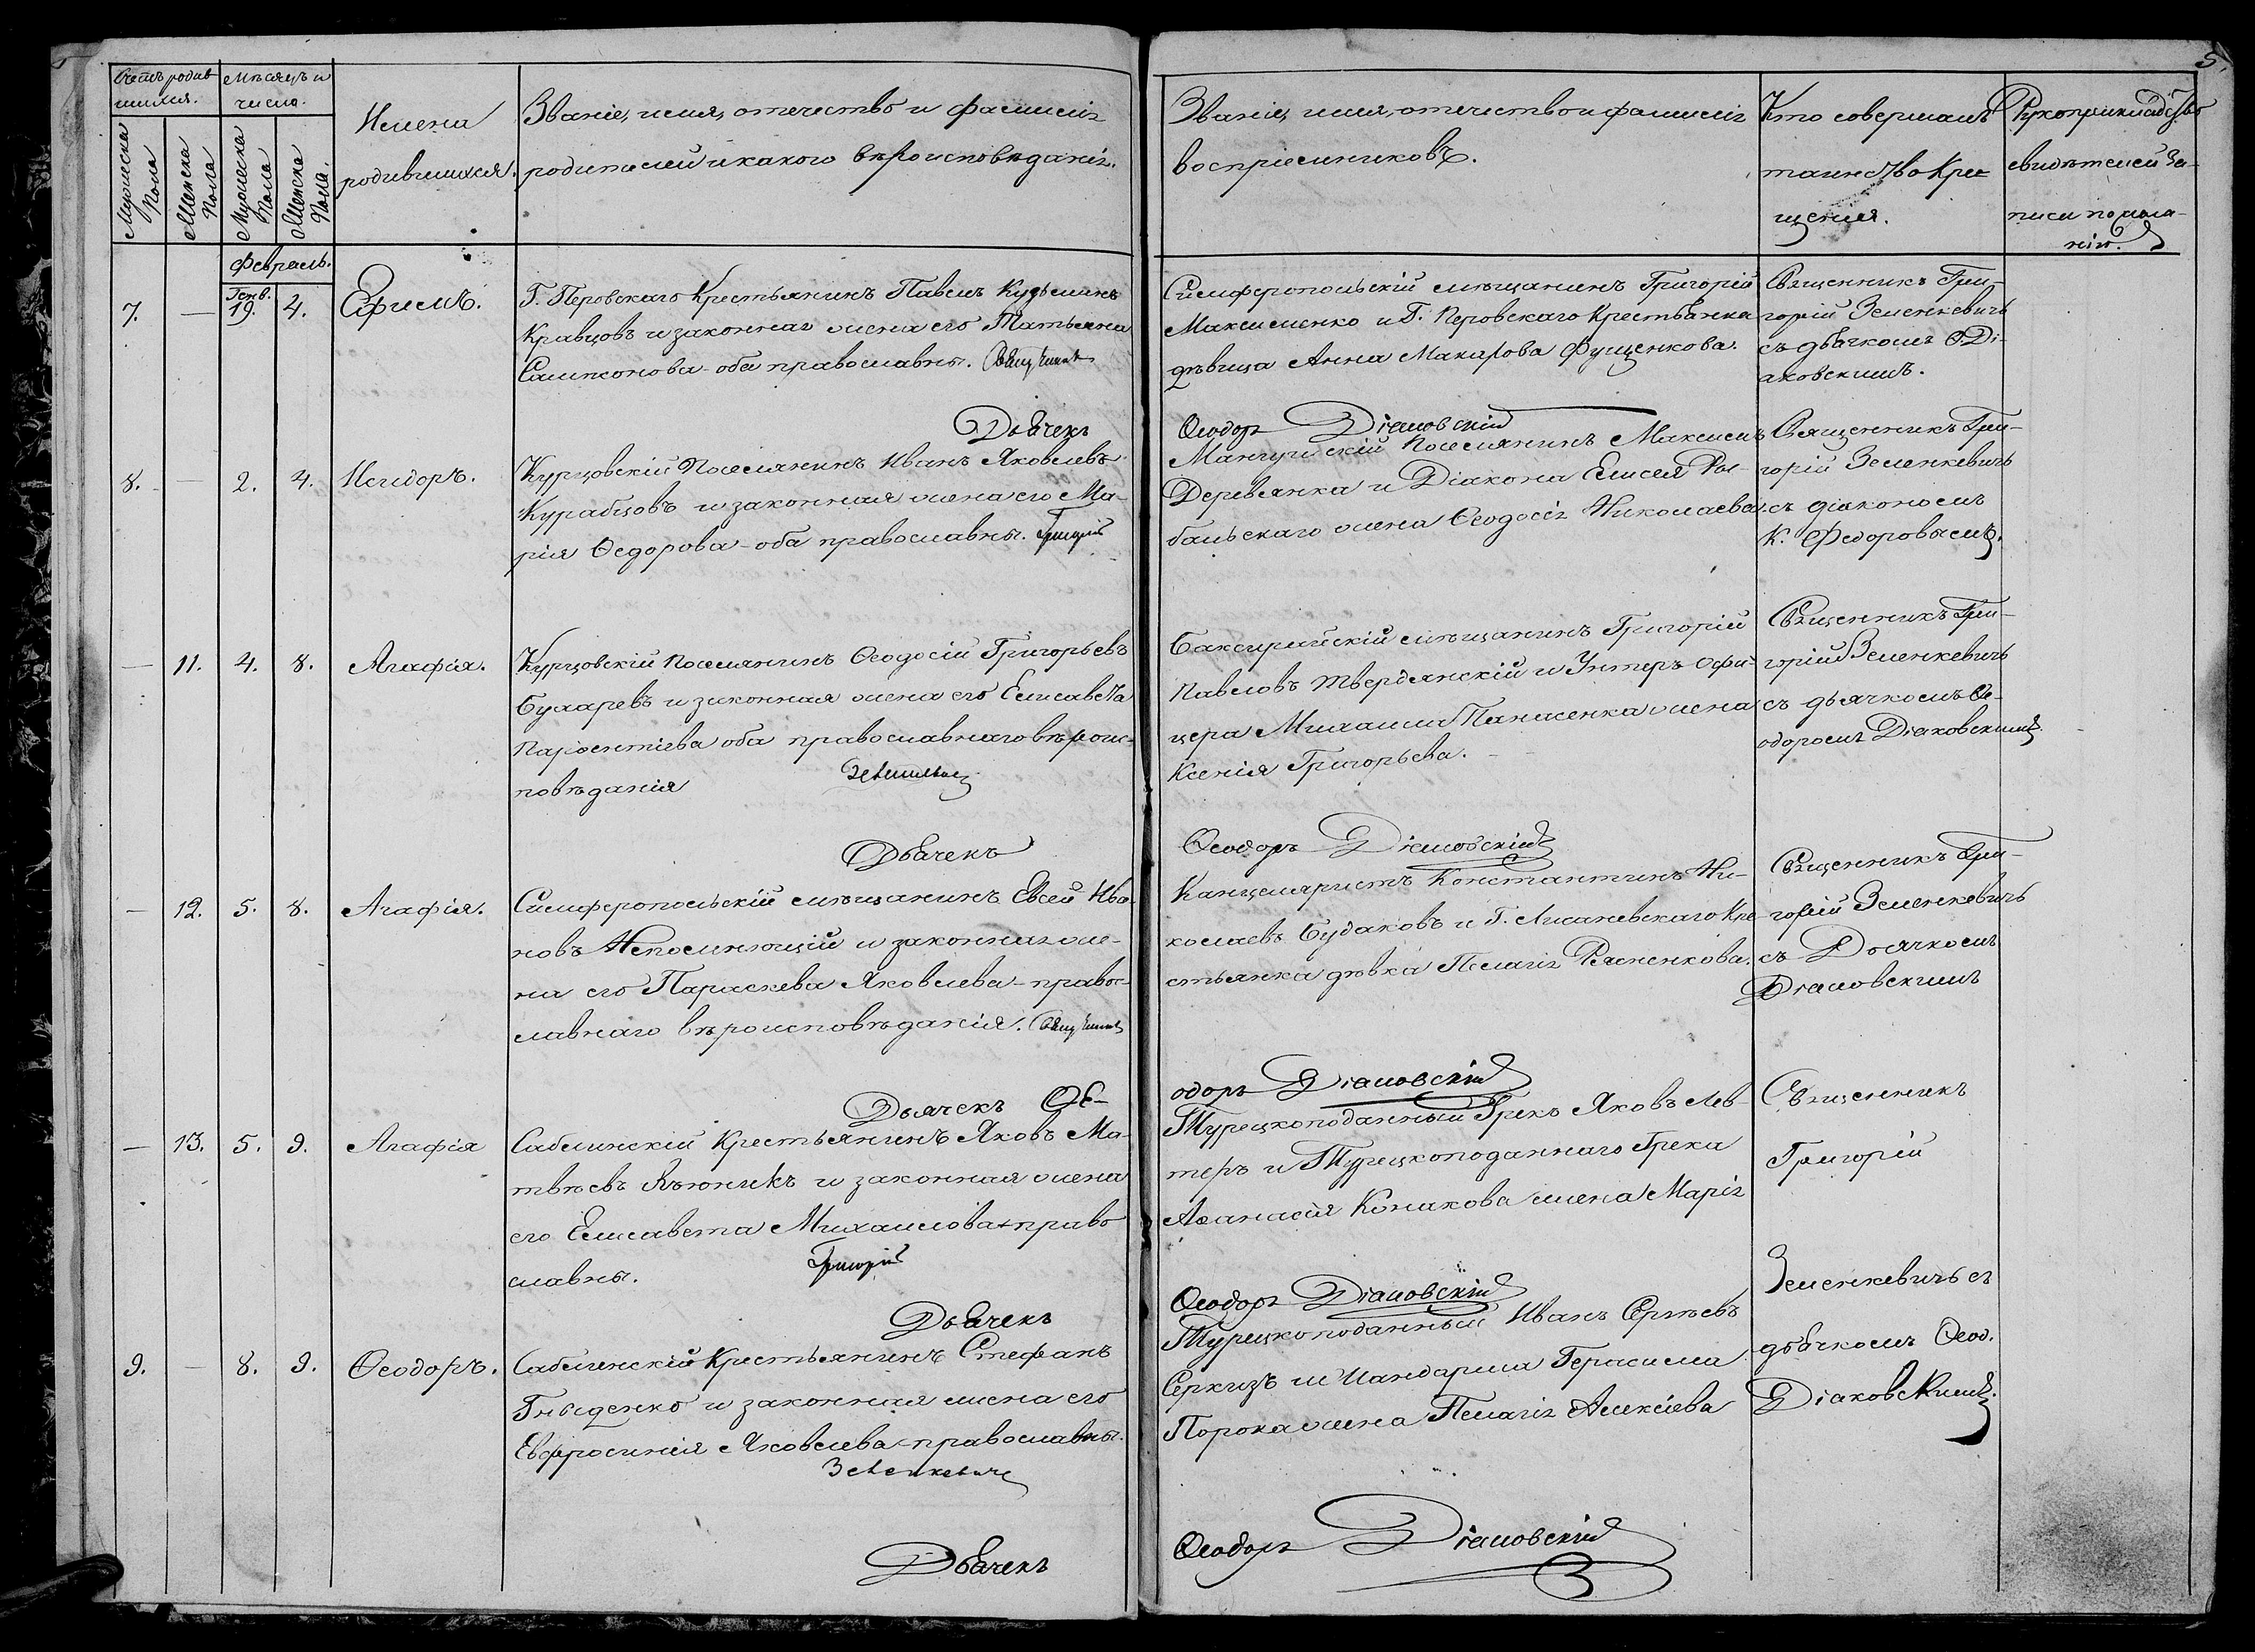 5.
Счетъ родив
шихся.
Мѣсяцъ и
число.
Мужеска
Пола
Женска
Пола
Мужеска
Пола
Женска
Пола.
Имена
родившихся.
Званіе, имя, отечество и фамилія
родителей и какого вѣроисповѣданія.
Званіе, имя, отечество и фамилія
воспріемниковъ.
Кто совершалъ
таинство Кре-
щенія.
Рукоприкладство
свидѣтелей за-
писи по жела-
нію.
Февраль.
7. — Генв. 19. 4. Ефимъ.
Г. Перовскаго Крестьянинъ Павелъ Кузьминъ
Кравцовъ и законная жена его Татьяна
Сампсонова - оба православны. Священникъ
Симферопольскій мѣщанинъ Григорій
Максименко и Г. Перовскаго Крестьянка
дѣвица Анна Макарова Фущенкова.
Священникъ Гри-
горій Зеленкевичъ
съ дьячкомъ Ѳ. Ді-
аковскимъ.
Дьячекъ Ѳеодоръ Діаковскій
8. — 2. 4. Исидоръ.
Курцовскій Поселянинъ Иванъ Яковлевъ
Курабцовъ и законная жена его Ма-
рія Ѳедорова - оба православны. Григорій
Мангушскій Поселянинъ Максимъ
Деревянка и Діакона Елисея
бальскаго жена Ѳеодосія Николаева
Священникъ Гри-
горій Зеленкевичъ
съ діакономъ
К. Федоровымъ.
— 11. 4. 8. Агафія.
Курцовскій поселянинъ Ѳеодосій Григорьевъ
Бухаревъ и законная жена его Елисавета
Парѳентіева оба православнаго вѣроис-
повѣданія Зеленкевичъ
Григорій
Павловъ Твердянскій и Унтеръ-офи-
цера Михаила Панасенка жена
Ксенія Григорьева.
Священникъ Гри-
горій Зеленкевичъ
съ дьячкомъ Ѳе-
одоромъ Діаковскимъ
Дьячекъ Ѳеодоръ Діаковскій
— 12. 5. 8. Агафія.
Симферопольскій мѣщанинъ Евсей Ива-
новъ Непомнющій и законная же-
на его Параскева Яковлева - правос-
лавнаго вѣроисповѣданія. Священникъ
Канцеляристъ Константинъ Ни-
колаевъ Будаковъ и Г. Лисаневскаго Кре-
стьянка дѣвка Пелагія Рясненкова.
Священникъ Гри-
горій Зеленкевичъ
съ Дьячкомъ
Діаковскимъ
Дьячекъ Ѳе-
одоръ Діаковскій
— 13. 5. 9. Агафія
Саблинскій Крестьянинъ Яковъ Ма-
твѣевъ и законная жена
его Елисавета Михаилова - право
славны. Григорій
Турецкоподанный Грекъ Яковъ Лев-
теръ и Турецкоподаннаго Грека
Аѳанасія Конакова жена Марія
Священникъ
Григорій
Дьячекъ Ѳеодоръ Діаковскій
9. — 8. 9. Ѳеодоръ.
Саблинскій Крестьянинъ Стефанъ
Гныденко и законная жена его
Евфросинія Яковлева - православны.
Зеленкевичъ
Турецкоподанный Иванъ Сергѣевъ
Серкизъ и Жандарма Герасима
Порока жена Пелагія Алексіева
Зеленкевичъ съ
дьячкомъ Ѳеод.
Діаковскимъ.
Дьячекъ Ѳеодоръ Діаковскій